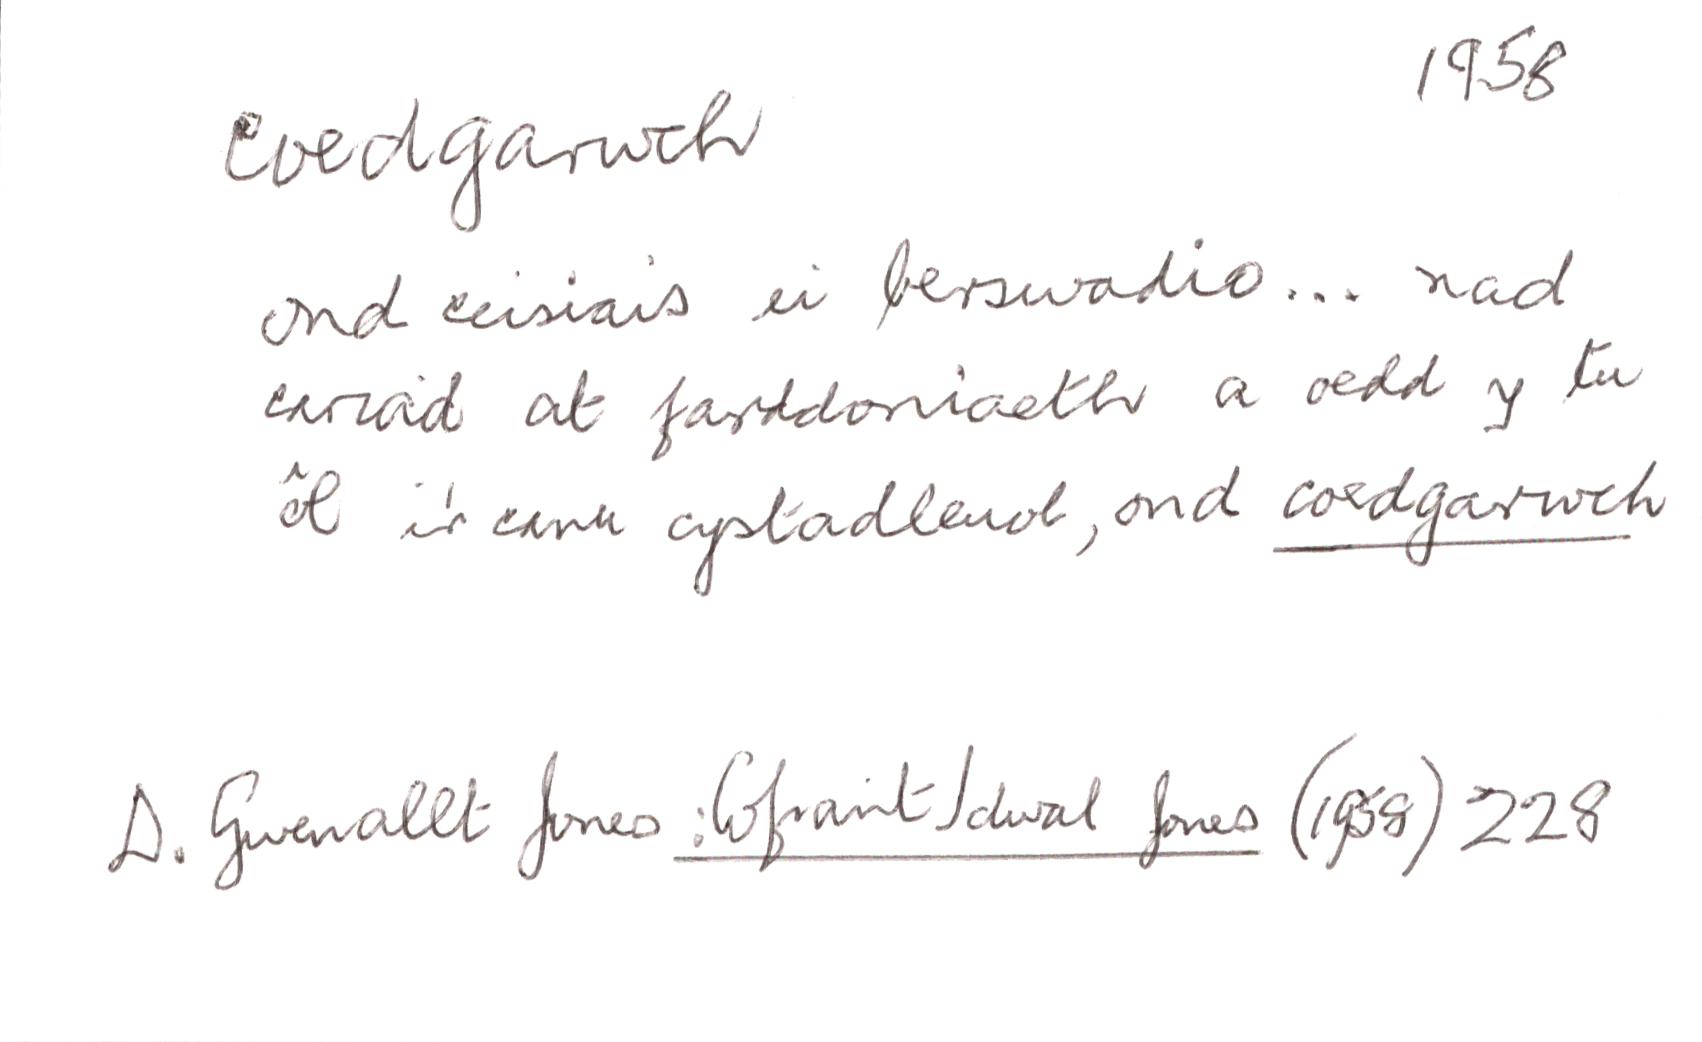 1958
coedgarwch
ond ceisiais ei berswadio... nad
cariad at farddoniaeth a oedd y tu
ôl i'r canu cystadleuol, ond coedgarwch
D. Gwenallt Jones : Cofiant Idwal Jones (1958) 228